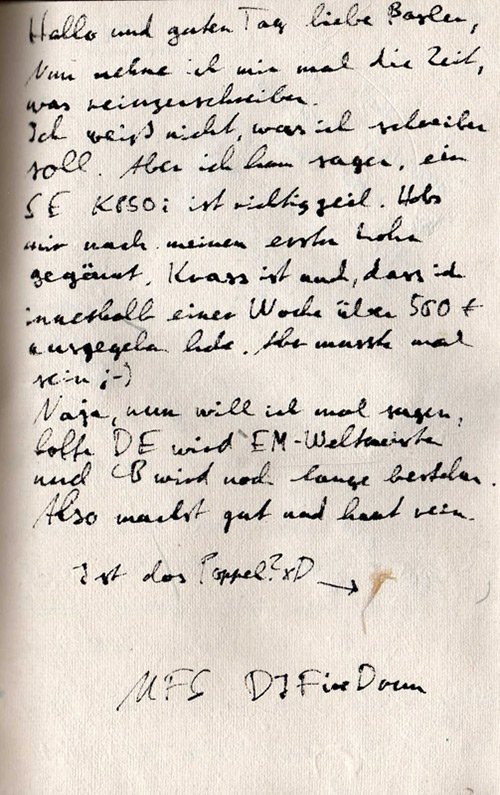 Hallo und guten Tag liebe Basler,
Nun nehme ich mir mal die Zeit,
was reinzuschreiben.
Ich weiß nicht, was ich schreiben
soll. Aber ich kann sagen, ein
SE K850i ist richtig geil. Habs
mir nach meinen ersten Lohn
gegönnt. Krass ist auch, dass ich
innerhalb einer Woche über 500 €
ausgegeben habe. Aber musste mal
sein ;-)
Naja, nun will ich mal sagen,
hoffe DE wird EM-Weltmeister
und CB wird noch lange bestehen.
Also machst gut und haut rein.
Ist das Poppel? xD →
MFG DJ Fire Down